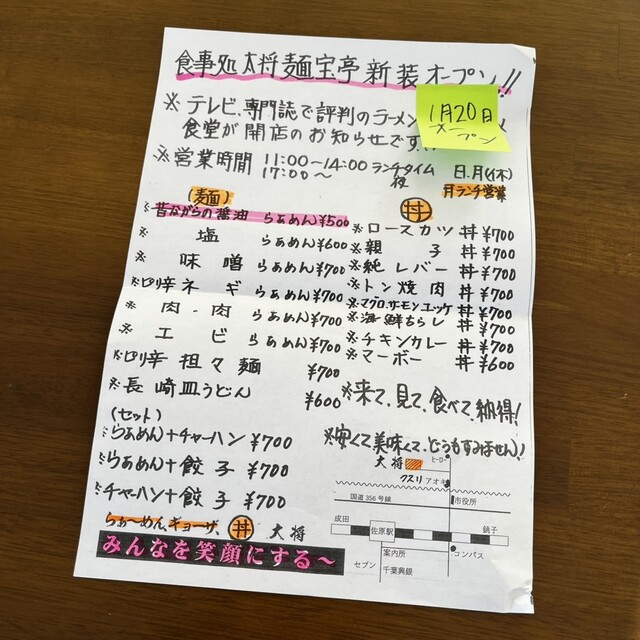 食事処大将麺宝亭新装オープン!!
※テレビ、専門誌で評判のラーメン
食堂が開店のお知らせです、!!
1月20日
オープン
※営業時間 11:00〜14:00 ランチタイム 日.月(休)
17:00〜 夜 月ランチ営業
(麺)
※昔ながらの醤油らぁめん¥500
※塩らぁめん¥600
※味噌らぁめん¥700
※ピリ辛ネギらぁめん¥700
※肉・肉らぁめん¥700
※エビらぁめん¥700
※ピリ辛担々麺¥700
※長崎皿うどん¥600
(セット)
※らぁめん+チャーハン¥700
※らぁめん+餃子¥700
※チャーハン+餃子¥700
丼
※ロースカツ丼¥700
※親子丼¥700
※純レバー丼¥700
※トン焼肉丼¥700
※マグロ.サーモンユッケ丼¥700
※海鮮ちらし丼¥700
※チキンカレー丼¥700
※マーボー丼¥600
※来て、見て、食べて、納得!
※安くて美味くて、どうもすみません!
らぁ〜めん、ギョーザ、丼 大将
みんなを笑顔にする〜
大将
ヒーロー
クスリ アオキ
国道356号線
市役所
成田
佐原駅
銚子
案内所
コンパス
セブン
千葉興銀